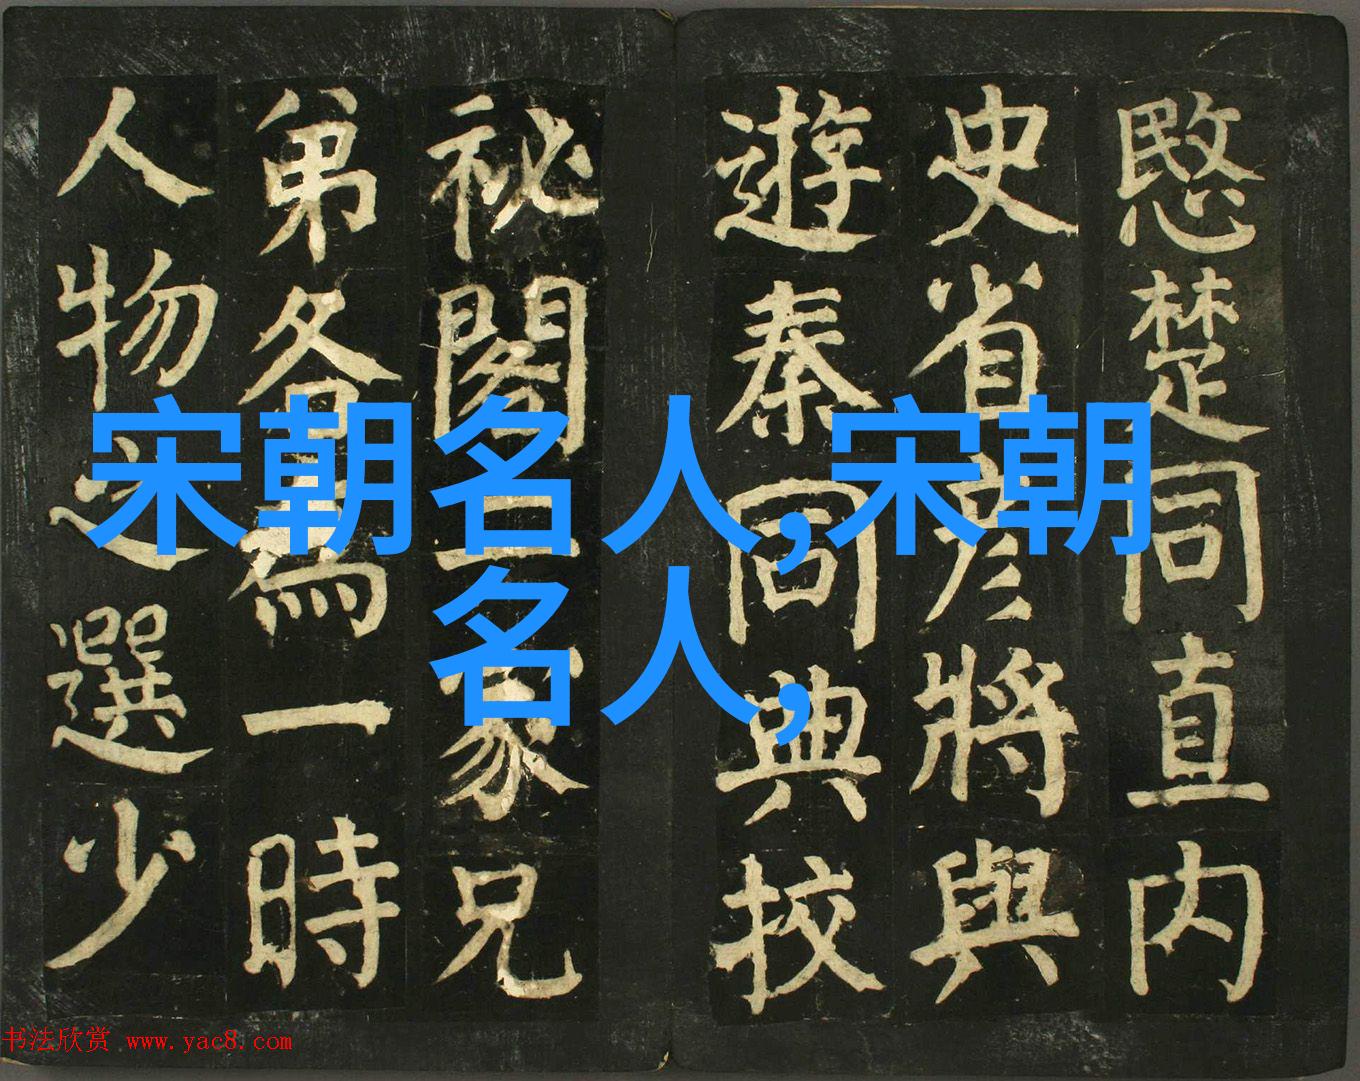 愍楚同直内
史省彦將與
遊秦同典校
祕閣二家兄
弟各為一時
人物之選少
宋朝名人,宋朝
名人,
书法欣赏 www.yac8.com